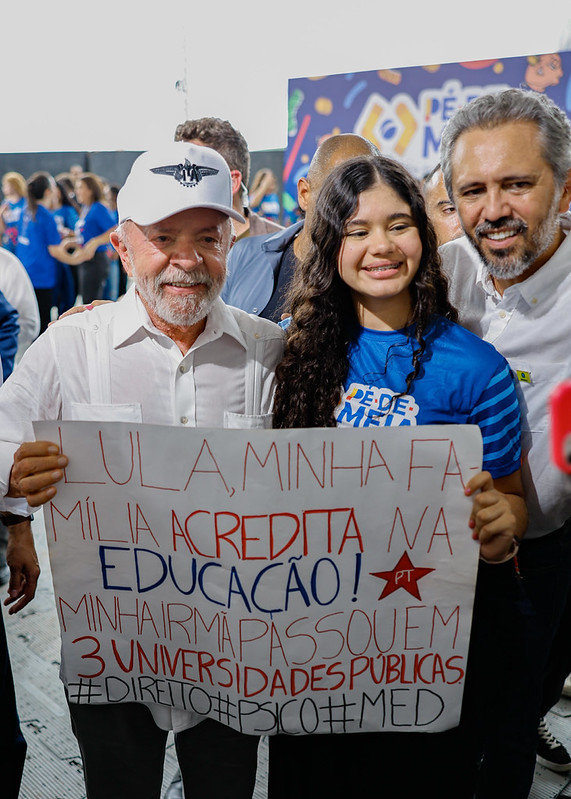 PÉ-DE-
MEIA
PÉ-DE-
MEIA
LULA, MINHA FA-
MÍLIA ACREDITA NA
EDUCAÇÃO!
PT
MINHA IRMÃ PASSOU EM
3 UNIVERSIDADES PÚBLICAS.
#DIREITO#PSICO#MED